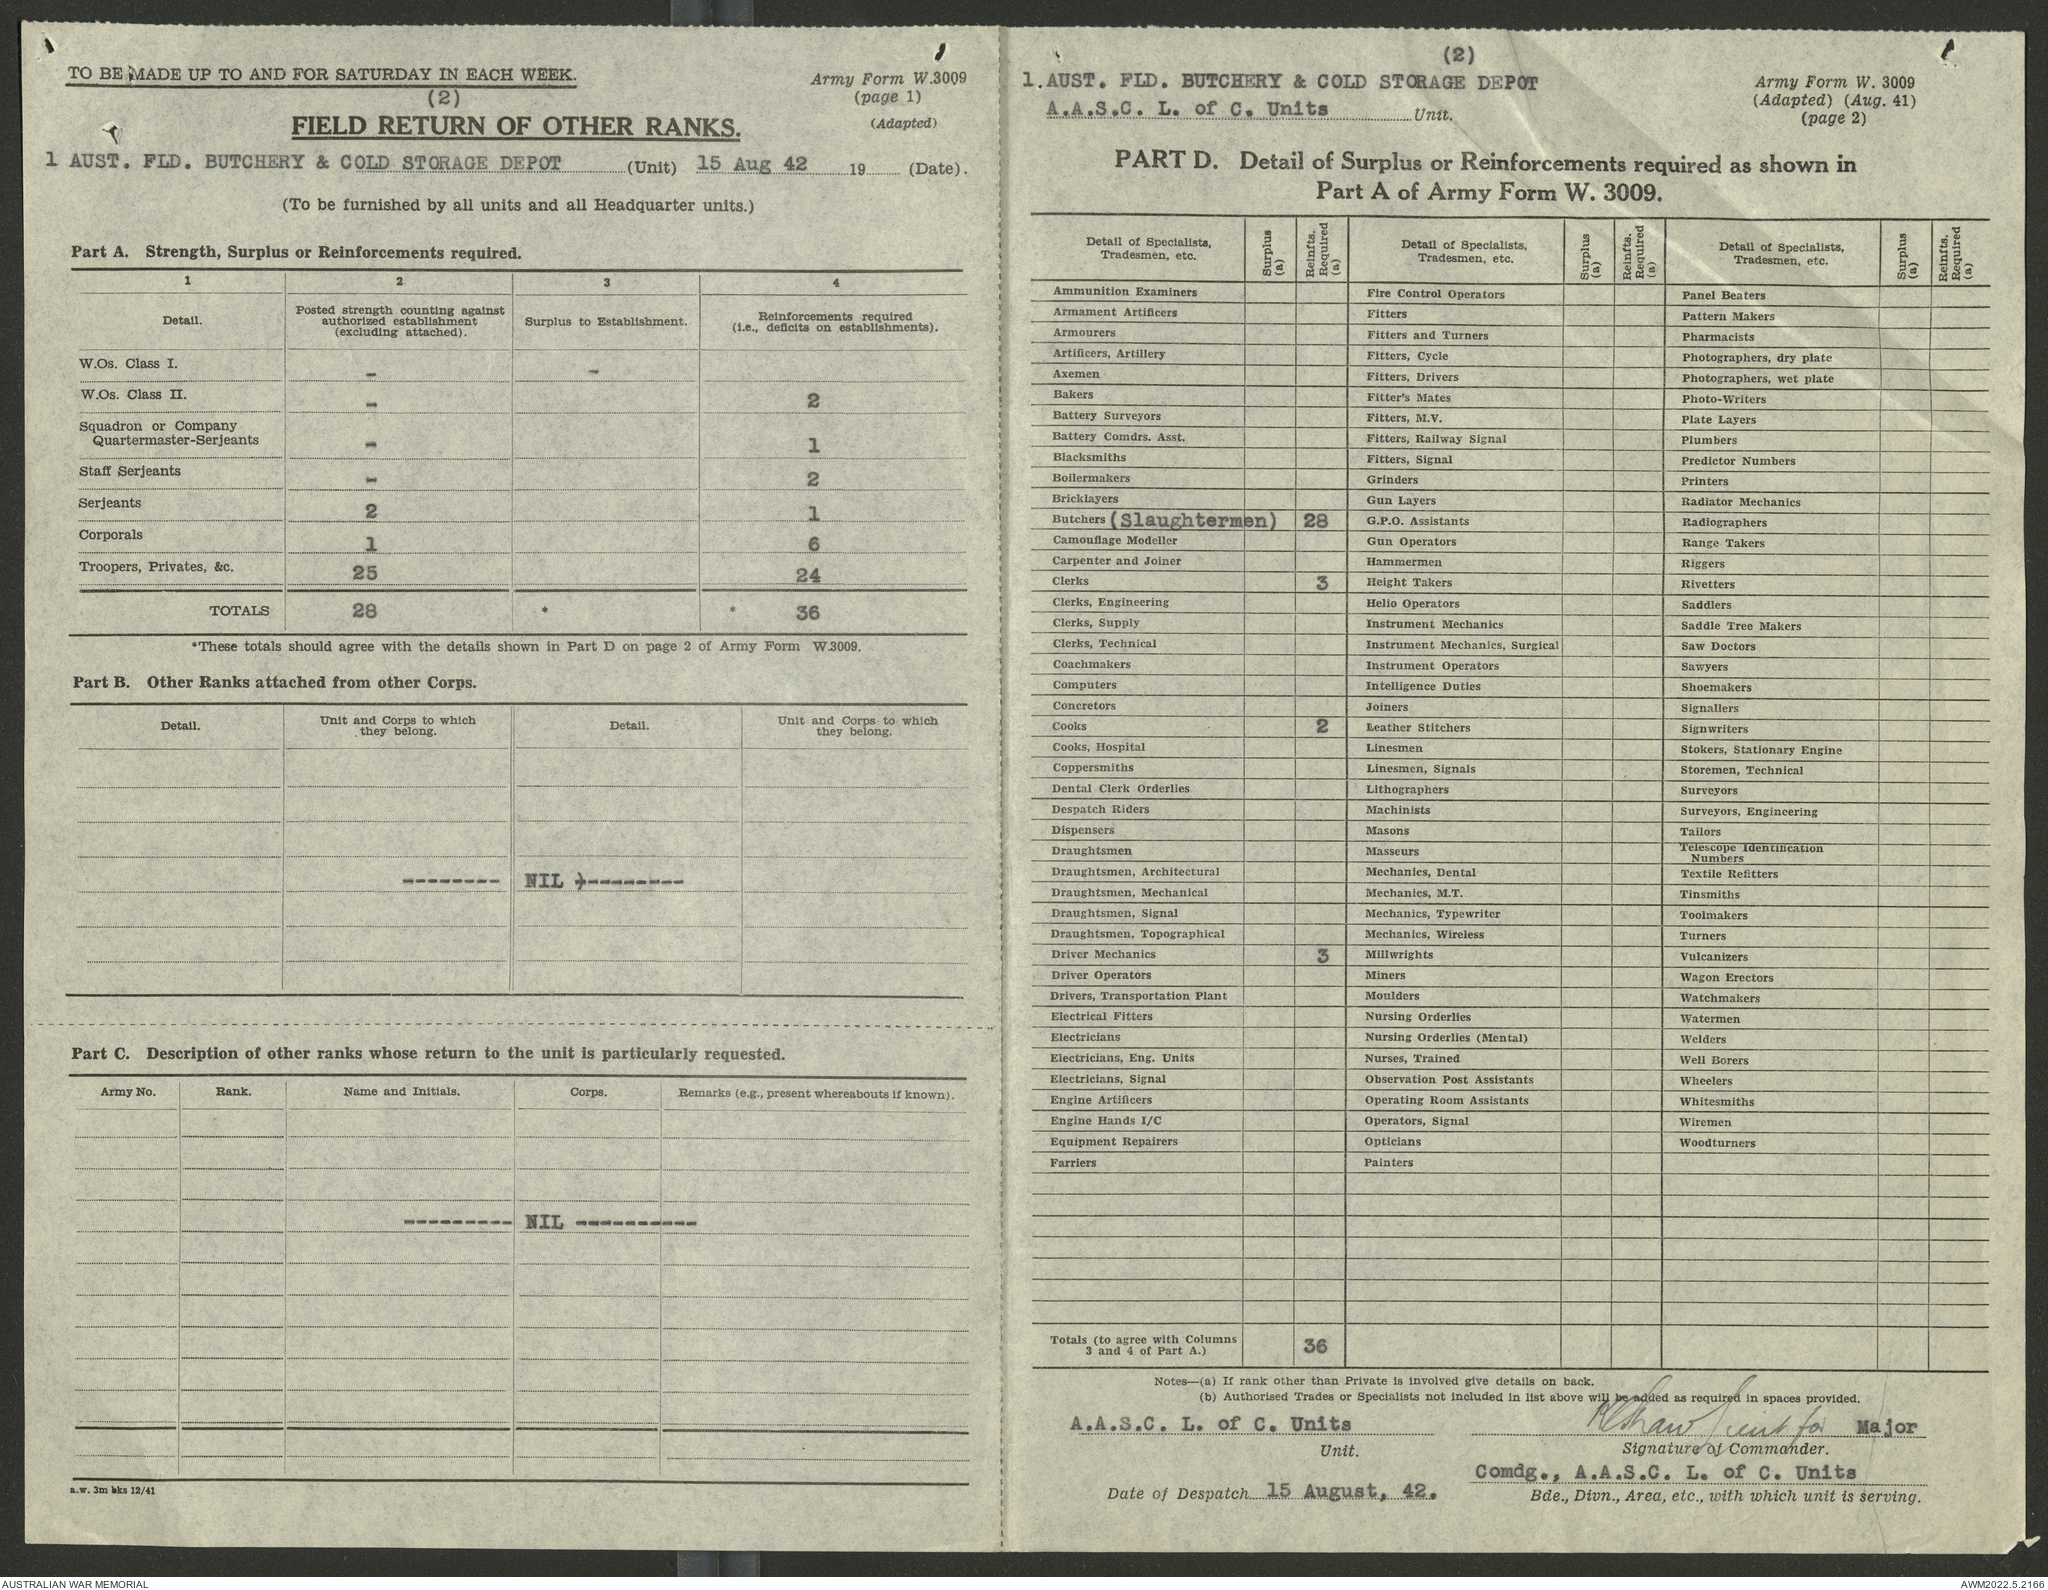 TO BE MADE UP TO AND FOR SATURDAY IN EACH WEEK.
Army Form W.3009
(page 1)
(Adapted)
(2)
FIELD RETURN OF OTHER RANKS.
1 AUST. FLD. BUTCHERY & COLD STORAGE DEPOT (Unit) 15 Aug 42 19 (Date).
(To be furnished by all units and all Headquarter units.)
Part A. Strength, Surplus or Reinforcements required.
1 2 3 4
Detail. Posted strength counting against authorized establishment (excluding attached). Surplus to Establishment. Reinforcements required (i.e., deficits on establishments).
W.Os. Class I. - -
W.Os. Class II. - 2
Squadron or Company
Quartermaster-Serjeants - 1
Staff Serjeants - 2
Serjeants 2 1
Corporals 1 6
Troopers, Privates, &c. 25 24
TOTALS 28 * * 36
*These totals should agree with the details shown in Part D on page 2 of Army Form W.3009.
Part B. Other Ranks attached from other Corps.
Detail. Unit and Corps to which they belong. Detail. Unit and Corps to which they belong.
-------- NIL )--------
Part C. Description of other ranks whose return to the unit is particularly requested.
Army No. Rank. Name and Initials. Corps. Remarks (e.g., present whereabouts if known).
--------- NIL ----------
a.w. 3m bks 12/41
(2)
1. AUST. FLD. BUTCHERY & COLD STORAGE DEPOT
A.A.S.C. L. of C. Units Unit.
Army Form W. 3009
(Adapted) (Aug. 41)
(page 2)
PART D. Detail of Surplus or Reinforcements required as shown in
Part A of Army Form W. 3009.
Detail of Specialists, Tradesmen, etc. Surplus (a) Reinfts. Required (a) Detail of Specialists, Tradesmen, etc. Surplus (a) Reinfts. Required (a) Detail of Specialists, Tradesmen, etc. Surplus (a) Reinfts. Required (a)
Ammunition Examiners Fire Control Operators Panel Beaters
Armament Artificers Fitters Pattern Makers
Armourers Fitters and Turners Pharmacists
Artificers, Artillery Fitters, Cycle Photographers, dry plate
Axemen Fitters, Drivers Photographers, wet plate
Bakers Fitter's Mates Photo-Writers
Battery Surveyors Fitters, M.V. Plate Layers
Battery Comdrs. Asst. Fitters, Railway Signal Plumbers
Blacksmiths Fitters, Signal Predictor Numbers
Boilermakers Grinders Printers
Bricklayers Gun Layers Radiator Mechanics
Butchers (Slaughtermen) 28 G.P.O. Assistants Radiographers
Camouflage Modeller Gun Operators Range Takers
Carpenter and Joiner Hammermen Riggers
Clerks 3 Height Takers Rivetters
Clerks, Engineering Helio Operators Saddlers
Clerks, Supply Instrument Mechanics Saddle Tree Makers
Clerks, Technical Instrument Mechanics, Surgical Saw Doctors
Coachmakers Instrument Operators Sawyers
Computers Intelligence Duties Shoemakers
Concretors Joiners Signallers
Cooks 2 Leather Stitchers Signwriters
Cooks, Hospital Linesmen Stokers, Stationary Engine
Coppersmiths Linesmen, Signals Storemen, Technical
Dental Clerk Orderlies Lithographers Surveyors
Despatch Riders Machinists Surveyors, Engineering
Dispensers Masons Tailors
Draughtsmen Masseurs Telescope Identification Numbers
Draughtsmen, Architectural Mechanics, Dental Textile Refitters
Draughtsmen, Mechanical Mechanics, M.T. Tinsmiths
Draughtsmen, Signal Mechanics, Typewriter Toolmakers
Draughtsmen, Topographical Mechanics, Wireless Turners
Driver Mechanics 3 Millwrights Vulcanizers
Driver Operators Miners Wagon Erectors
Drivers, Transportation Plant Moulders Watchmakers
Electrical Fitters Nursing Orderlies Watermen
Electricians Nursing Orderlies (Mental) Welders
Electricians, Eng. Units Nurses, Trained Well Borers
Electricians, Signal Observation Post Assistants Wheelers
Engine Artificers Operating Room Assistants Whitesmiths
Engine Hands I/C Operators, Signal Wiremen
Equipment Repairers Opticians Woodturners
Farriers Painters
Totals (to agree with Columns
3 and 4 of Part A.) 36
Notes—(a) If rank other than Private is involved give details on back.
(b) Authorised Trades or Specialists not included in list above will be added as required in spaces provided.
A.A.S.C. L. of C. Units for Major
Unit. Signature of Commander.
Comdg., A.A.S.C. L. of C. Units
Date of Despatch 15 August, 42. Bde., Divn., Area, etc., with which unit is serving.
AUSTRALIAN WAR MEMORIAL AWM2022.5.2166